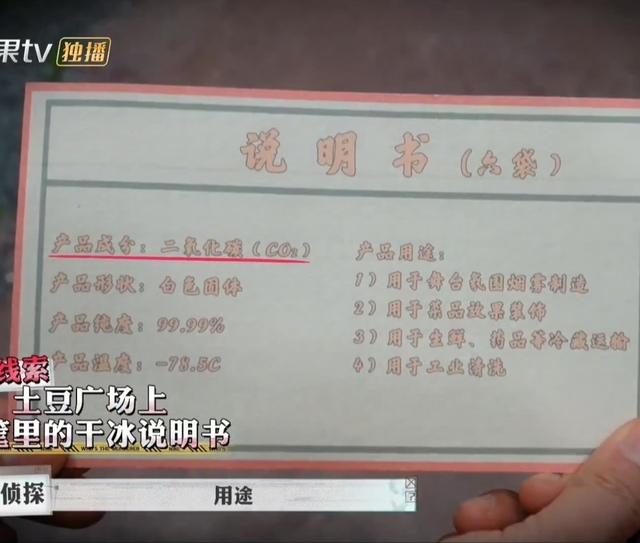 果tv 独播
说明书（六袋）
产品成分：二氧化碳（CO₂）
产品形状：白色固体
产品纯度：99.99%
产品温度：-78.5C
产品用途：
1）用于舞台氛围烟雾制造
2）用于菜品效果装饰
3）用于生鲜、药品等冷藏运输
4）用于工业清洗
线索
土豆广场上
里的干冰说明书
侦探
用途